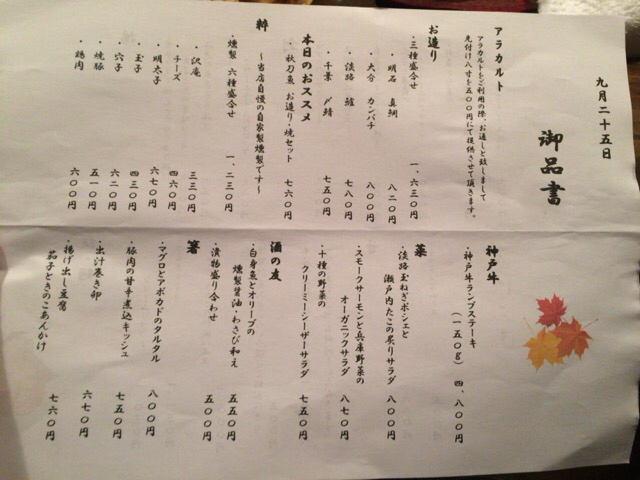 九月二十五日
御品書
アラカルト
アラカルトをご利用の際、お通しと致しまして
先付け八寸を五〇〇円にて提供させて頂きます。
お造り
・三種盛合せ 一、六三〇円
・明石 真鯛 八二〇円
・大分 カンパチ 八〇〇円
・淡路 鱧 七八〇円
・千葉 〆鯖 七五〇円
本日のおススメ
・秋刀魚 お造り・焼セット 七六〇円
粋 ～当店自慢の自家製燻製です～
・燻製 六種盛合せ 一、二三〇円
・沢庵 三三〇円
・チーズ 四六〇円
・明太子 六七〇円
・玉子 四三〇円
・穴子 六二〇円
・焼豚 五一〇円
・鶏肉 六〇〇円
神戸牛
・神戸牛ランプステーキ
(一五〇g) 四、八〇〇円
菜
・淡路玉ねぎポシェと
瀬戸内たこの炙りサラダ 八〇〇円
・スモークサーモンと兵庫野菜の
オーガニックサラダ 八七〇円
・十種の野菜の
クリーミーシーザーサラダ 七五〇円
酒の友
・白身魚とオリーブの
燻製醤油・わさび和え 五五〇円
・漬物盛り合わせ 五〇〇円
箸
・マグロとアボカドのタルタル 八〇〇円
・豚肉の甘辛煮込キッシュ 七五〇円
・出汁巻き卵 六七〇円
・揚げ出し豆腐
茄子ときのこあんかけ 七六〇円